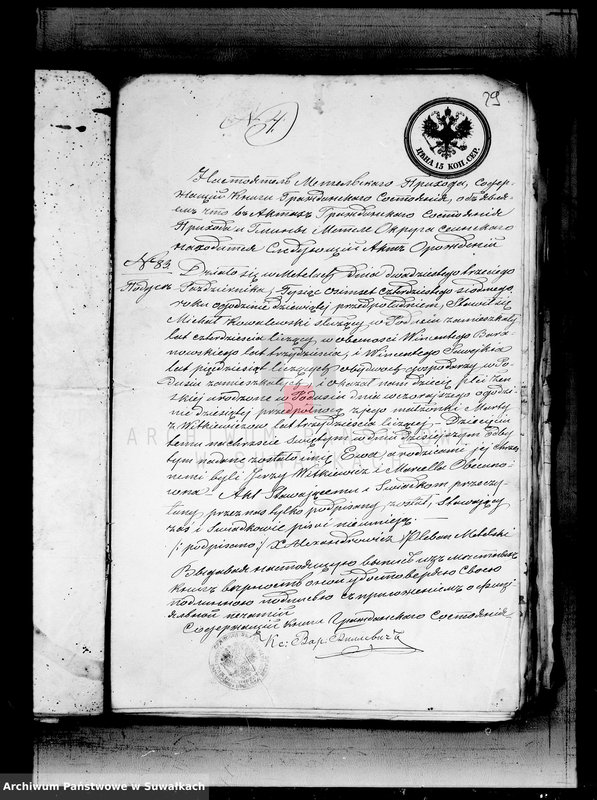 79
№ 4.
ЦѢНА 15 КОП. СЕР.
Настоятель Метельскаго Прихода, содер-
жащій книги Гражданскаго Состоянія, объявля-
емъ что въ Актахъ Гражданскаго Состоянія
Прихода и Гмины Метеле Округа
находится слѣдующій Актъ Орожденій
№ 83
Działo się w Metelach dnia dwudziestego trzeciego
Października, Tysiąc ośmset czterdziestego siódmego
roku o godzinie dziewiątej przedpołudniem, Stawił się
Michał Kowalewski służący w Podusiu zamieszkały
lat czterdzieścia liczący, w obecności Wincentego Bara-
nowskiego lat trzydzieścia, i Wincentego
lat pięćdziesiąt liczących obydwóch gospodarzy w Po-
dusiu zamieszkałych, i okazał nam dziecię płci żeń-
skiej urodzone w Podusiu dnia wczorajszego o godzi-
nie dziesiątej przedpółnocą z jego małżonki Marty
z Witkiewiczów lat trzydzieścia liczącej. Dziecięciu
temu na chrzcie świętym w dniu dzisiejszym odby-
tym nadane zostało imię Ewa, a rodzicami jej chrze-
stnemi byli Jerzy Witkiewicz i Marcella
Akt Stawającemu i Świadkom przeczy-
tany przez nas tylko podpisany został, Stawający
zaś i Świadkowie pisać nieumieją.
(: podpisano :) X Alexandrowicz Pleban Metelski
Выдавая настоящую выпись изъ
книгъ вѣрность оной удостовѣряю своею
подлинною подписью съ приложеніемъ оффиці-
яльной печати
Содержащій книги Гражданскаго Состоянія
Кс: Вар.
ARCHIWUM PAŃSTWOWE
W SUWAŁKACH
Archiwum Państwowe w Suwałkach